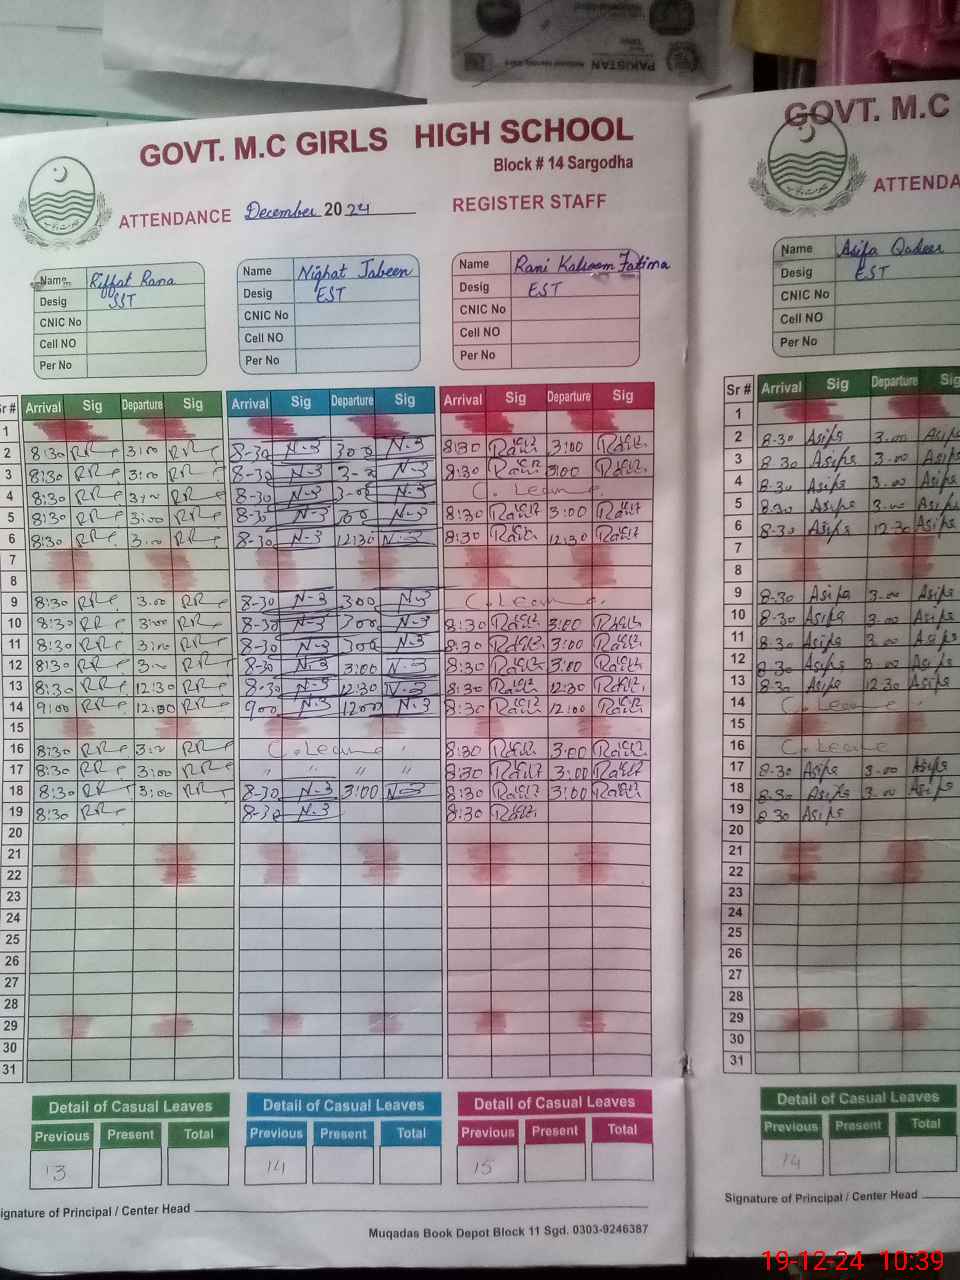 PAKISTAN National Identity Card
GOVT. M.C GIRLS HIGH SCHOOL
Block # 14 Sargodha
ATTENDANCE December 2024 REGISTER STAFF
Name Riffat Rana
Desig SST
CNIC No
Cell NO
Per No
Name Nighat Jabeen
Desig EST
CNIC No
Cell NO
Per No
Name Rani Kalsoom Fatima
Desig EST
CNIC No
Cell NO
Per No
Sr # Arrival Sig Departure Sig Arrival Sig Departure Sig Arrival Sig Departure Sig
1
2 8:30 RRe 3:00 RRe 8-30 N-3 300 N-3 8:30 3:00
3 8:30 RRe 3:00 RRe 8-30 N-3 N-3 8:30 3:00
4 8:30 RRe RRe 8-30 N-3 N-3 C. Leave
5 8:30 RRe 3:00 RRe 8-30 N-3 300 N-3 8:30 3:00
6 8:30 RRe 3:00 RRe 8-30 N-3 12:30 N-3 8:30 12:30
7
8
9 8:30 RRe 3.00 RRe 8-30 N-3 300 N-3 C. Leave
10 8:30 RRe 3:00 RRe 8-30 N-3 300 N-3 8:30 3:00
11 8:30 RRe 3:00 RRe 8-30 N-3 300 N-3 8:30 3:00
12 8:30 RRe RRe 8-30 N-3 3:00 N-3 8:30 3:00
13 8:30 RRe 12:30 RRe 8-30 N-3 12:30 N-3 8:30 12:30
14 9:00 RRe 12:00 RRe 900 N-3 1200 N-3 8:30 12:00
15
16 8:30 RRe RRe C. Leave 8:30 3:00
17 8:30 RRe 3:00 RRe " " " " 8:30 3:00
18 8:30 RRe 3:00 RRe 8-30 N-3 3:00 N-3 8:30 3:00
19 8:30 RRe 8-30 N-3 8:30
20
21
22
23
24
25
26
27
28
29
30
31
Detail of Casual Leaves Detail of Casual Leaves Detail of Casual Leaves
Previous Present Total Previous Present Total Previous Present Total
13 14 15
ignature of Principal / Center Head
Muqadas Book Depot Block 11 Sgd. 0303-9246387
GOVT. M.C
ATTENDA
Name Asifa Qadeer
Desig EST
CNIC No
Cell NO
Per No
Sr # Arrival Sig Departure Sig
1
2 8-30 Asifa 3.00 Asifa
3 8-30 Asifa 3.00 Asifa
4 8-30 Asifa 3.00 Asifa
5 8-30 Asifa 3.00 Asifa
6 8-30 Asifa 12.30 Asifa
7
8
9 8-30 Asifa 3.00 Asifa
10 8-30 Asifa 3.00 Asifa
11 8-30 Asifa 3.00 Asifa
12 8-30 Asifa 3.00 Asifa
13 8-30 Asifa 12.30 Asifa
14 C. Leave
15
16 C. Leave
17 8-30 Asifa 3.00 Asifa
18 8-30 Asifa 3.00 Asifa
19 8-30 Asifa
20
21
22
23
24
25
26
27
28
29
30
31
Detail of Casual Leaves
Previous Present Total
14
Signature of Principal / Center Head
19-12-24 10:39